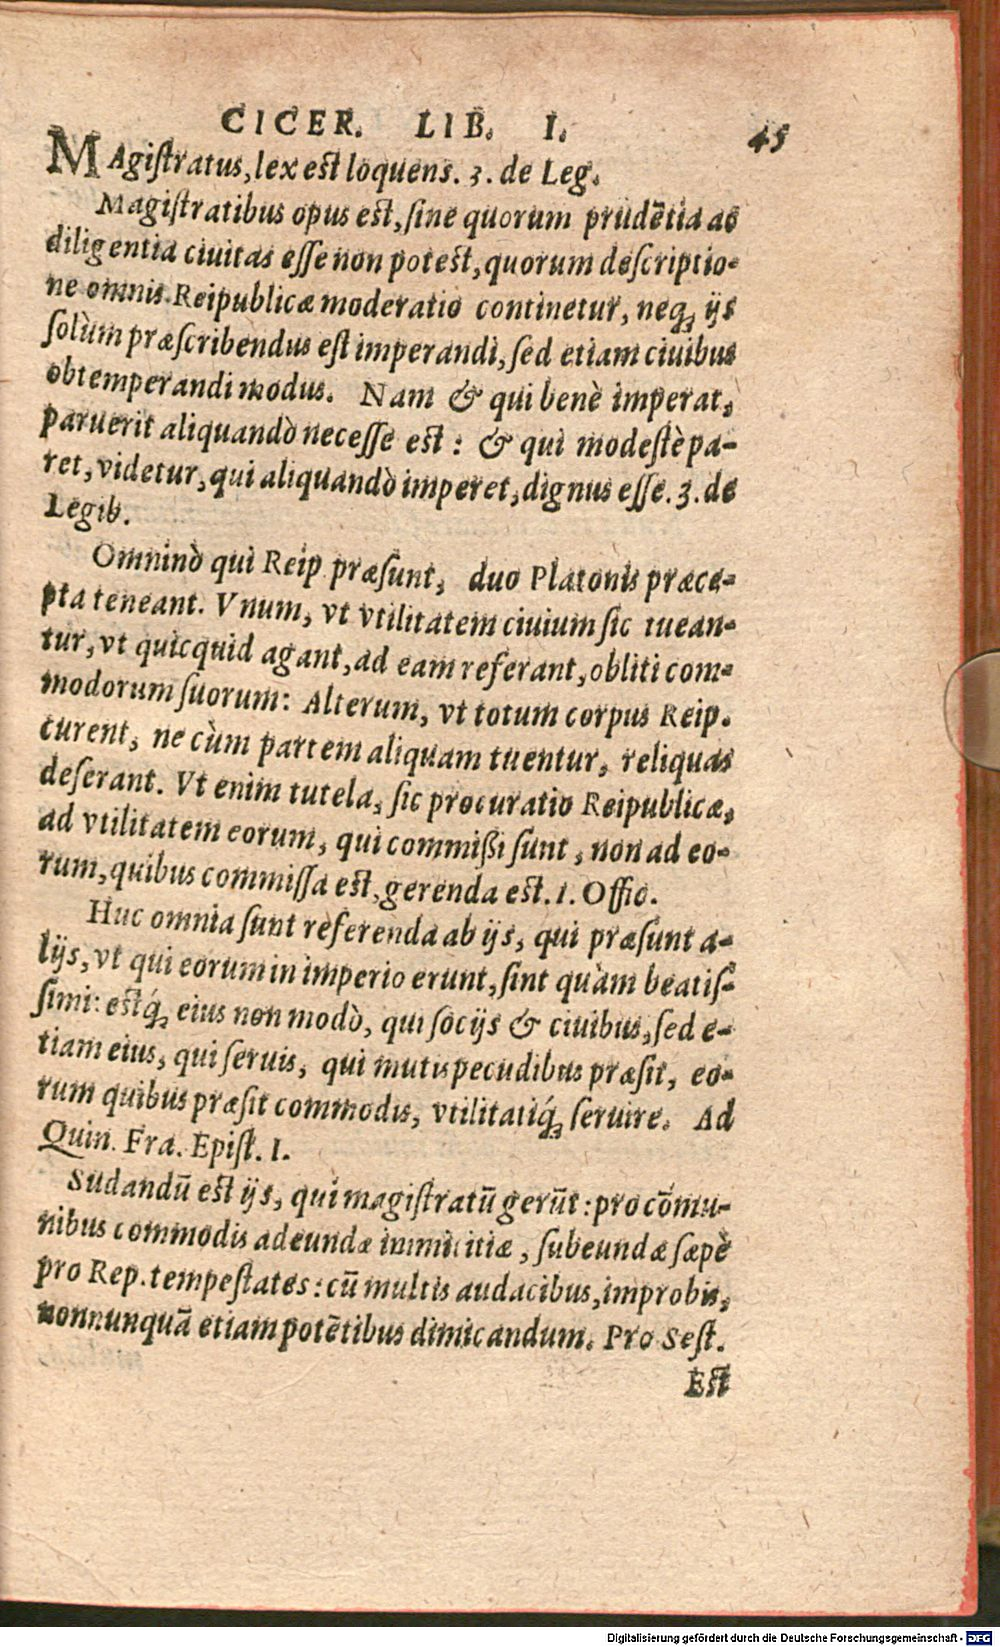 CICER. LIB. I. 45
MAgiſtratus, lex est loquens. 3. de Leg.
Magiſtratibus opus est, ſine quorum prudētia ac
diligentia ciuitas eſſe non potest, quorum deſcriptio-
ne omnis Reipublicæ moderatio continetur, neq; ijs
ſolùm præſcribendus eſt imperandi, ſed etiam ciuibus
obtemperandi modus. Nam & qui benè imperat,
paruerit aliquandò neceſſe est: & qui modeſtè pa-
ret, videtur, qui aliquandò imperet, dignus eſſe. 3. de
Legib.
Omninò qui Reip. præſunt, duo Platonis præce-
pta teneant. Vnum, vt vtilitatem ciuium ſic tuean-
tur, vt quicquid agant, ad eam referant, obliti com-
modorum ſuorum: Alterum, vt totum corpus Reip.
curent, ne cùm partem aliquam tuentur, reliquas
deſerant. Vt enim tutela, ſic procuratio Reipublicæ,
ad vtilitatem eorum, qui commißi ſunt, non ad eo-
rum, quibus commiſſa est, gerenda est. 1. Offic.
Huc omnia ſunt referenda ab ijs, qui præſunt a-
lijs, vt qui eorum in imperio erunt, ſint quàm beatiſ-
ſimi: estq́; eius non modò, qui ſocijs & ciuibus, ſed e-
tiam eius, qui ſeruis, qui mutis pecudibus præſit, eo-
rum quibus præſit commodis, vtilitatiq́; ſeruire. Ad
Quin. Fra. Epiſt. 1.
Sudandū est ijs, qui magiſtratū gerūt: pro cōmu-
nibus commodis adeundæ inimicitiæ, ſubeundæ ſæpè
pro Rep. tempeſtates: cū multis audacibus, improbis,
nonnunquā etiam potētibus dimicandum. Pro Seſt.
Est
Digitalisierung gefördert durch die Deutsche Forschungsgemeinschaft - DFG